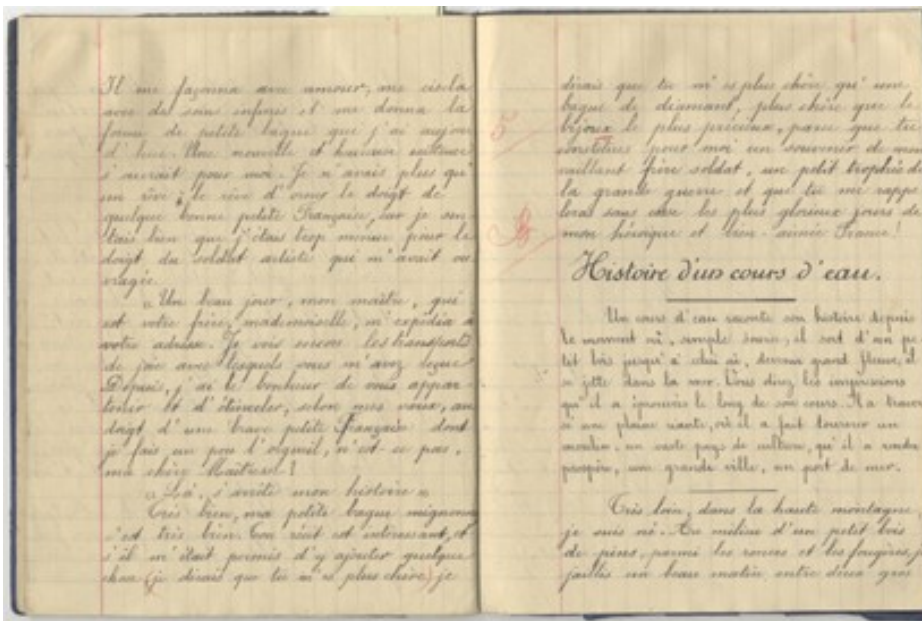 Il me façonna avec amour, me cisela
avec des soins infinis et me donna la
forme de petite bague que j'ai aujour
d'hui. Une nouvelle et heureuse existence
s'ouvrait pour moi. Je n'avais plus qu'
un rêve ; le rêve d'orner le doigt de
quelque bonne petite Française, car je sen
tais bien que j'étais trop menue pour le
doigt du soldat artiste qui m'avait ou
vragée.
"Un beau jour, mon maître, qui
est votre frère, mademoiselle, m'expédia à
votre adresse. Je vois encore les transports
de joie avec lesquels vous m'avez reçue
Depuis, j'ai le bonheur de vous appar
tenir et d'étinceler, selon mes vœux, au
doigt d'une brave petite Française dont
je fais un peu l'orgueil, n'est-ce pas,
ma chère Maîtresse !
"Là, s'arrête mon histoire"
Très bien, ma petite bague mignonne
c'est très bien. Ton récit est intéressant, et
s'il m'était permis d'y ajouter quelque
chose (je dirais que tu m'es plus chère) je
dirais que tu m'es plus chère qu'une
bague de diamant, plus chère que le
bijoux le plus précieux, parce que tu
constitues pour moi un souvenir de mon
vaillant frère soldat, un petit trophée de
la grande guerre et que tu me rappel
leras sans cesse les plus glorieux jours de
mon héroïque et bien-aimée France !
Histoire d'un cours d'eau.
Un cours d'eau raconte son histoire depuis
le moment où, simple source, il sort d'un pe
tit bois jusqu'à celui où, devenu grand fleuve, il
se jette dans la mer. Vous direz les impressions
qu'il a éprouvées le long de son cours. Il a traver
sé une plaine riante, où il a fait tourner un
moulin, un vaste pays de culture, qu'il a rendu
prospère, une grande ville, un port de mer.
Très loin, dans la haute montagne
je suis né. Au milieu d'un petit bois
de pins, parmi les ronces et les fougères, je
jaillis un beau matin entre deux gros